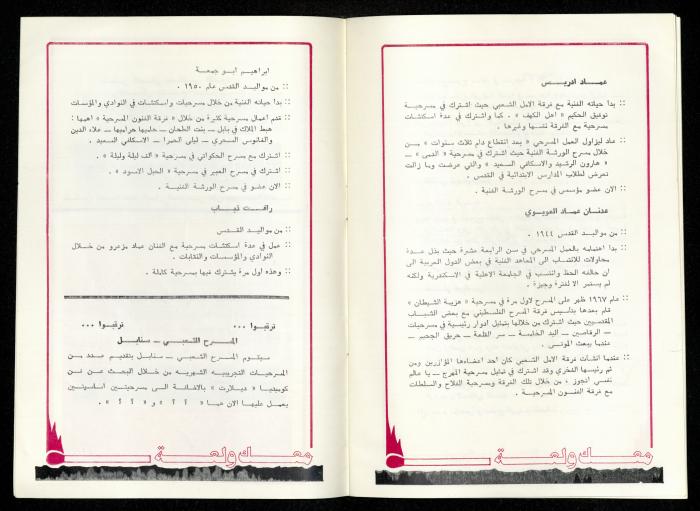 عماد ادريس
:: بدا حياته الفنية مع فرقة الامل الشعبي حيث اشترك في مسرحية
توفيق الحكيم « اهل الكهف » . كما واشترك في عدة اسكتشات
مسرحية مع الفرقة نفسها وغيرها .
:: عاد ليزاول العمل المسرحي « بعد انقطاع دام ثلاث سنوات » من
خلال مسرح الورشة الفنية حيث اشترك في مسرحية « القمى » ــ
« هارون الرشيد والاسكافي السعيد » والتي عرضت وما زالت
تعرض لطلاب المدارس الابتدائية في القدس .
:: الان عضو مؤسس في مسرح الورشة الفنية .
عدنان عماد العويوي
:: من مواليد القدس ١٩٤٤ .
:: بدا اهتمامه بالعمل المسرحي في سن الرابعة عشرة حيث بذل عدة
محاولات للانتساب الى المعاهد الفنية في بعض الدول العربية الى
ان حالفه الحظ وانتسب في الجامعة الاهلية في الاسكندرية ولكنه
لم يستمر الا لفترة وجيزة .
:: عام ١٩٦٧ ظهر على المسرح لاول مرة في مسرحية « هزيمة الشيطان »
قام بعدها بتأسيس فرقة المسرح الفلسطيني مع بعض الشباب
المقدسيين حيث اشترك من خلالها بتمثيل ادوار رئيسية في مسرحيات
ــ الرقاصين ــ اليد الخليسة ــ سر الطلعة ــ حريق الجحيم ــ
عندما يبعث الموتى .
:: عندما انشات فرقة الامل الشعبي كان احد اعضاءها المؤازرين ومن
ثم رئيسها الفخري وقد اشترك في تمثيل مسرحية المهرج ــ يا عالم
نفسي اتجوز ، من خلال تلك الفرقة ومسرحية الفلاح والسلطات
مع فرقة الفنون المسرحية .
معك ولعة
ابراهيم ابو جمعة
:: من مواليد القدس عام ١٩٥٠ .
:: بدا حياته الفنية من خلال مسرحيات واسكتشات في النوادي والمؤسسات
:: قدم اعمال مسرحية كثيرة من خلال « فرقة الفنون المسرحية » اهمها :
هبط الملاك في بابل ــ بنت الطحان ــ حاميها حراميها ــ علاء الدين
والفانوس السحري ــ ليلى الحمرا ــ الاسكافي السعيد .
:: اشترك مع مسرح الحكواتي في مسرحية « الف ليلة وليلة » .
:: اشترك في مسرح العمير في مسرحية « الحبل الاسود » .
:: الان عضو في مسرح الورشة الفنية .
رافت تباب
:: من مواليد القدس
:: عمل في عدة اسكتشات مسرحية مع الفنان عماد مزعرو من خلال
النوادي والمؤسسات والنقابات .
:: وهذه اول مرة يشترك فيها بمسرحية كاملة .
ترقبوا ... ترقبوا ...
المسرح الشعبي ــ سنابل
سيقوم المسرح الشعبي ــ سنابل بتقديم عدد من
المسرحيات التجريبية الشهرية من خلال البحث عن فن
كوميديا « ديلارت » بالاضافة الى مسرحيتين اساسيتين
يعمل عليها الان هما « ؟ ؟ » و « ؟ ؟ » .
معك ولعة